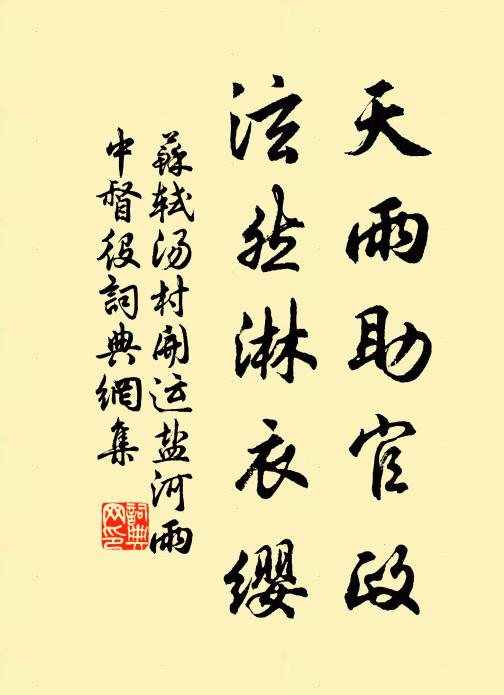 天雨助官政
泫然淋衣缨
蘇轼汤村開运盐河雨
中督役詞典網集
詞典
网印